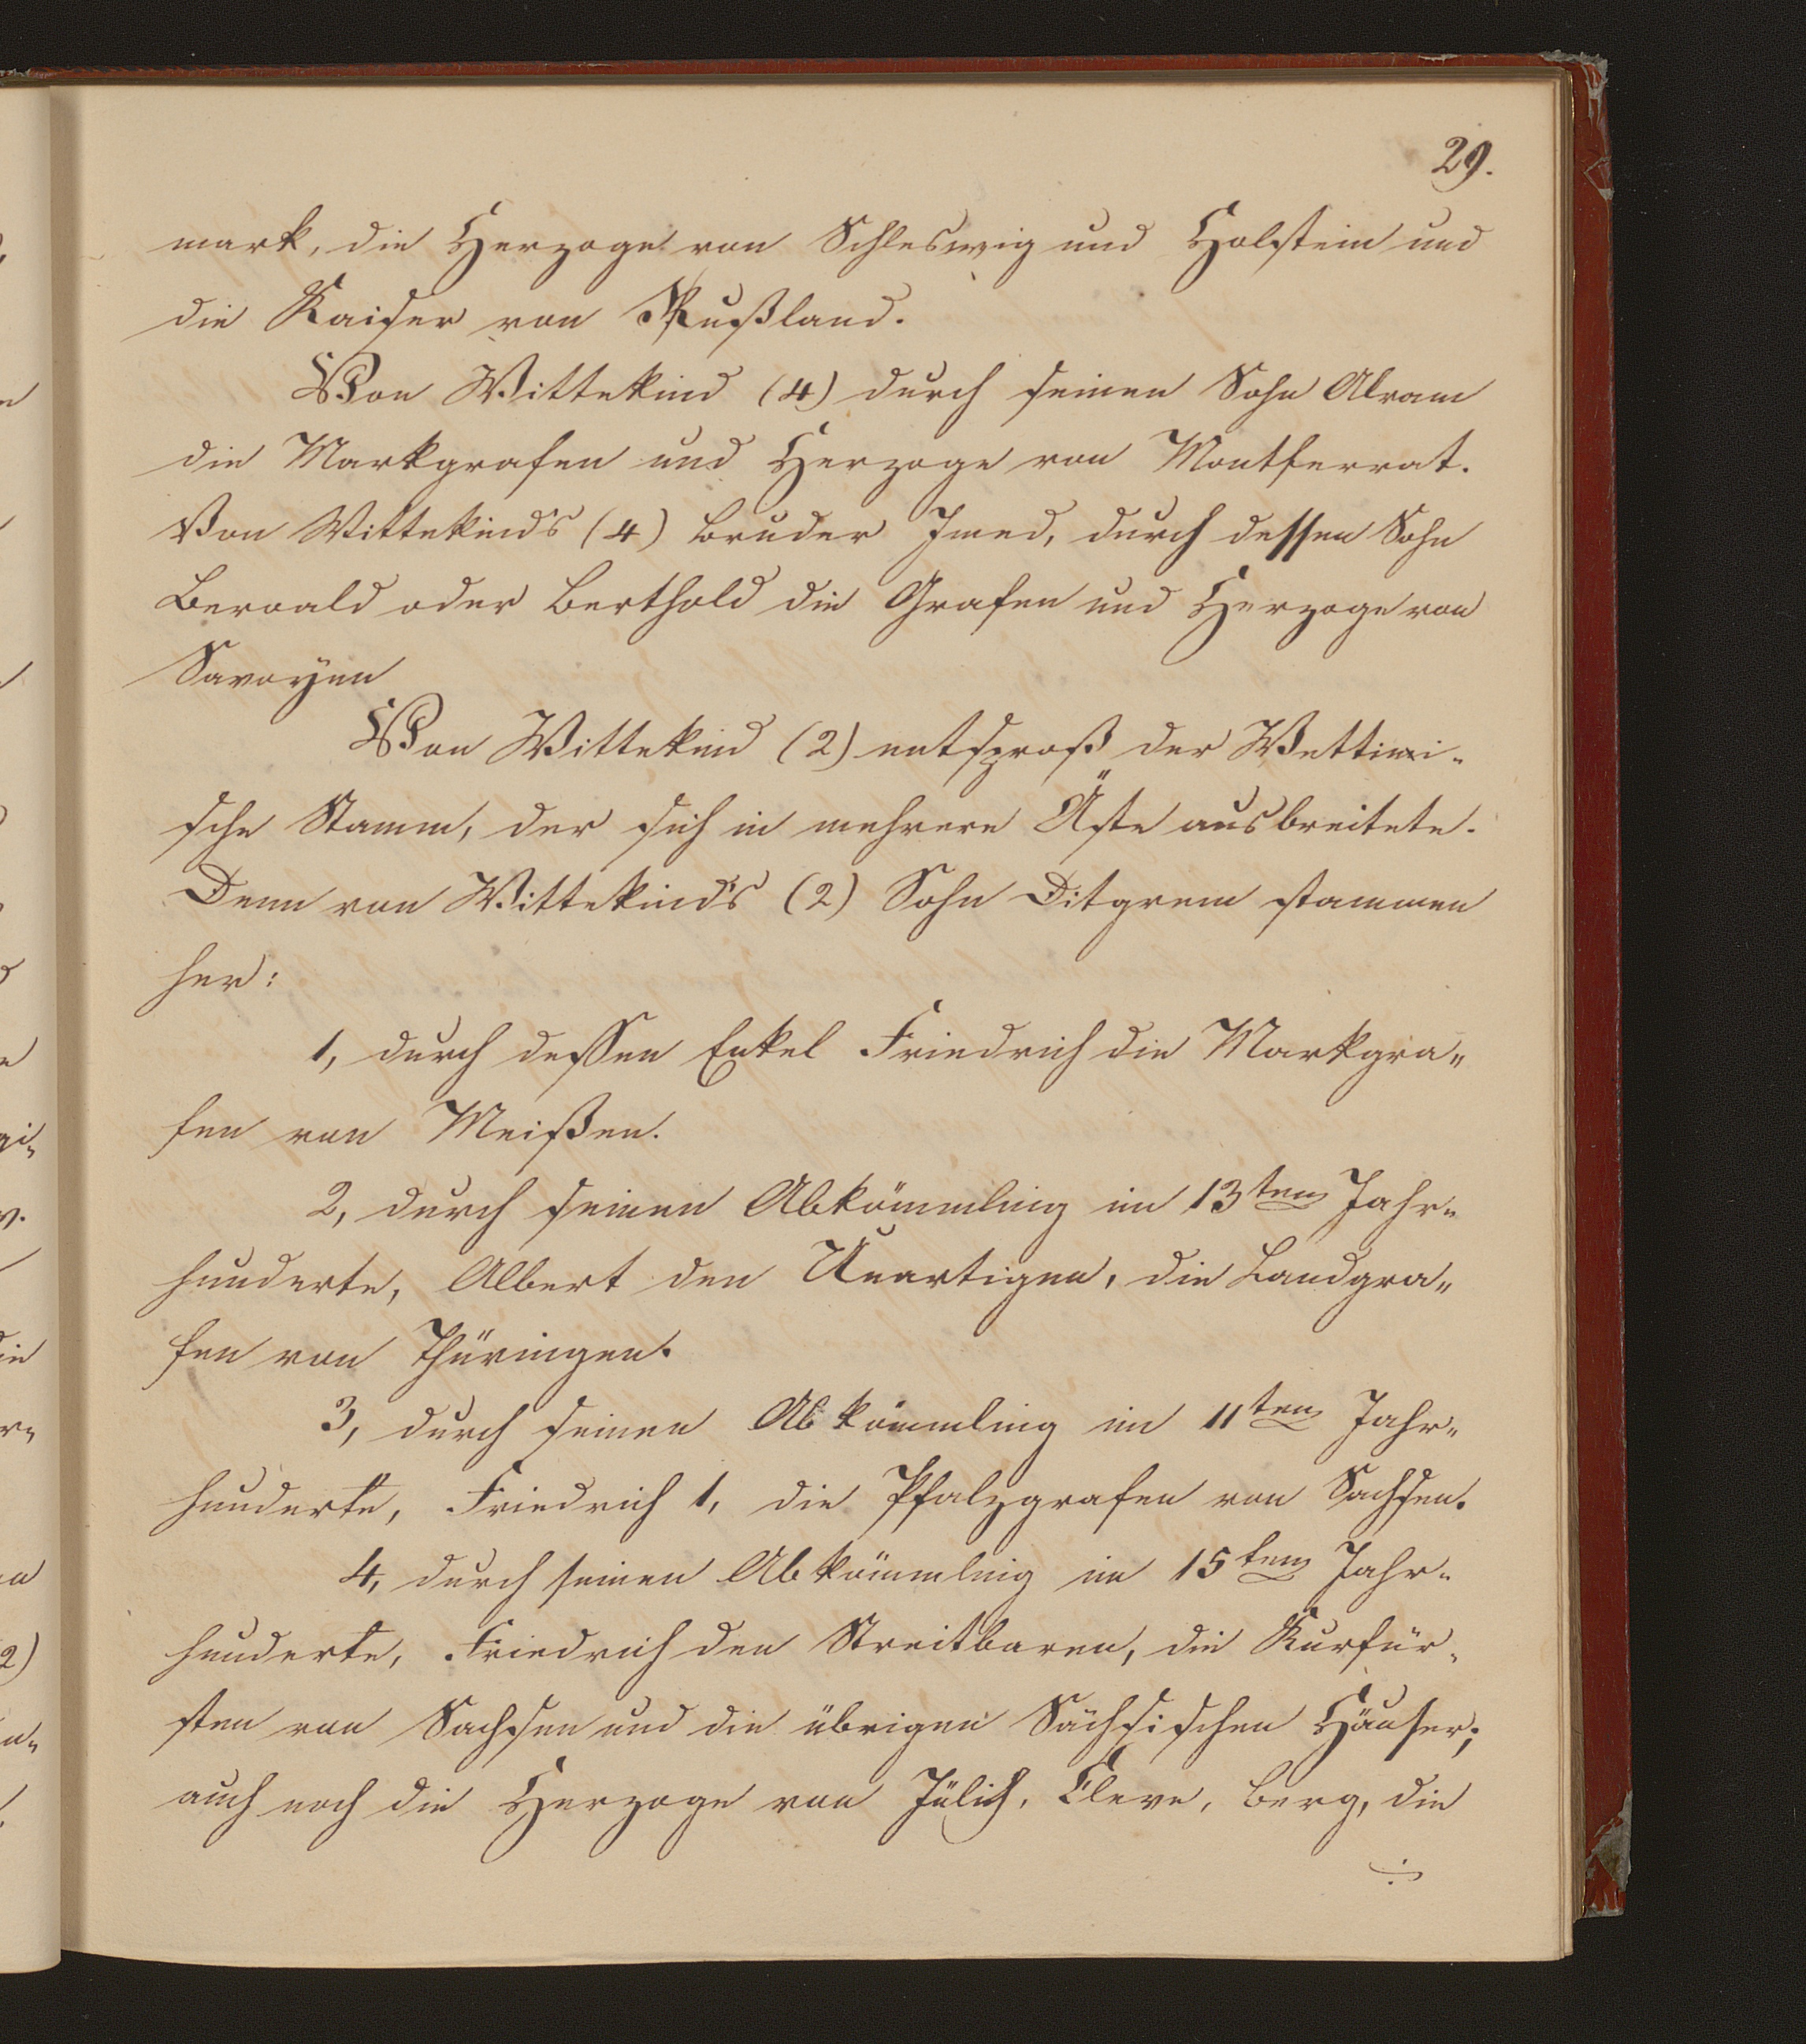 29.
mark, die Herzoge von Schleswig und Holstein und
die Kaiser von Rußland.
Von Wittekind (4) durch seinen Sohn Alram
die Markgrafen und Herzoge von Montferrat.
Von Wittekind's (4) Bruder Imed, durch dessen Sohn
Beroald oder Berthold die Grafen und Herzoge von
Savoyen
Von Wittekind (2) entsproß der Wettini-
sche Stamm, der sich in mehrere Äste ausbreitete.
Denn von Wittekind's (2) Sohn Ditgrem stammen
her:
1, durch dessen Enkel Friedrich die Markgra-
fen von Meißen.
2, durch seinen Abkömmling im 13ten Jahr-
hunderte, Albert den Unartigen, die Landgra-
fen von Thüringen.
3, durch seinen Abkömmling im 11ten Jahr-
hunderte, Friedrich 1, die Pfalzgrafen von Sachsen.
4, durch seinen Abkömmling im 15ten Jahr-
hunderte, Friedrich den Streitbaren, die Kurfür-
sten von Sachsen und die übrigen Sächsischen Häuser;
auch noch die Herzoge von Jülich, Cleve, Berg, die